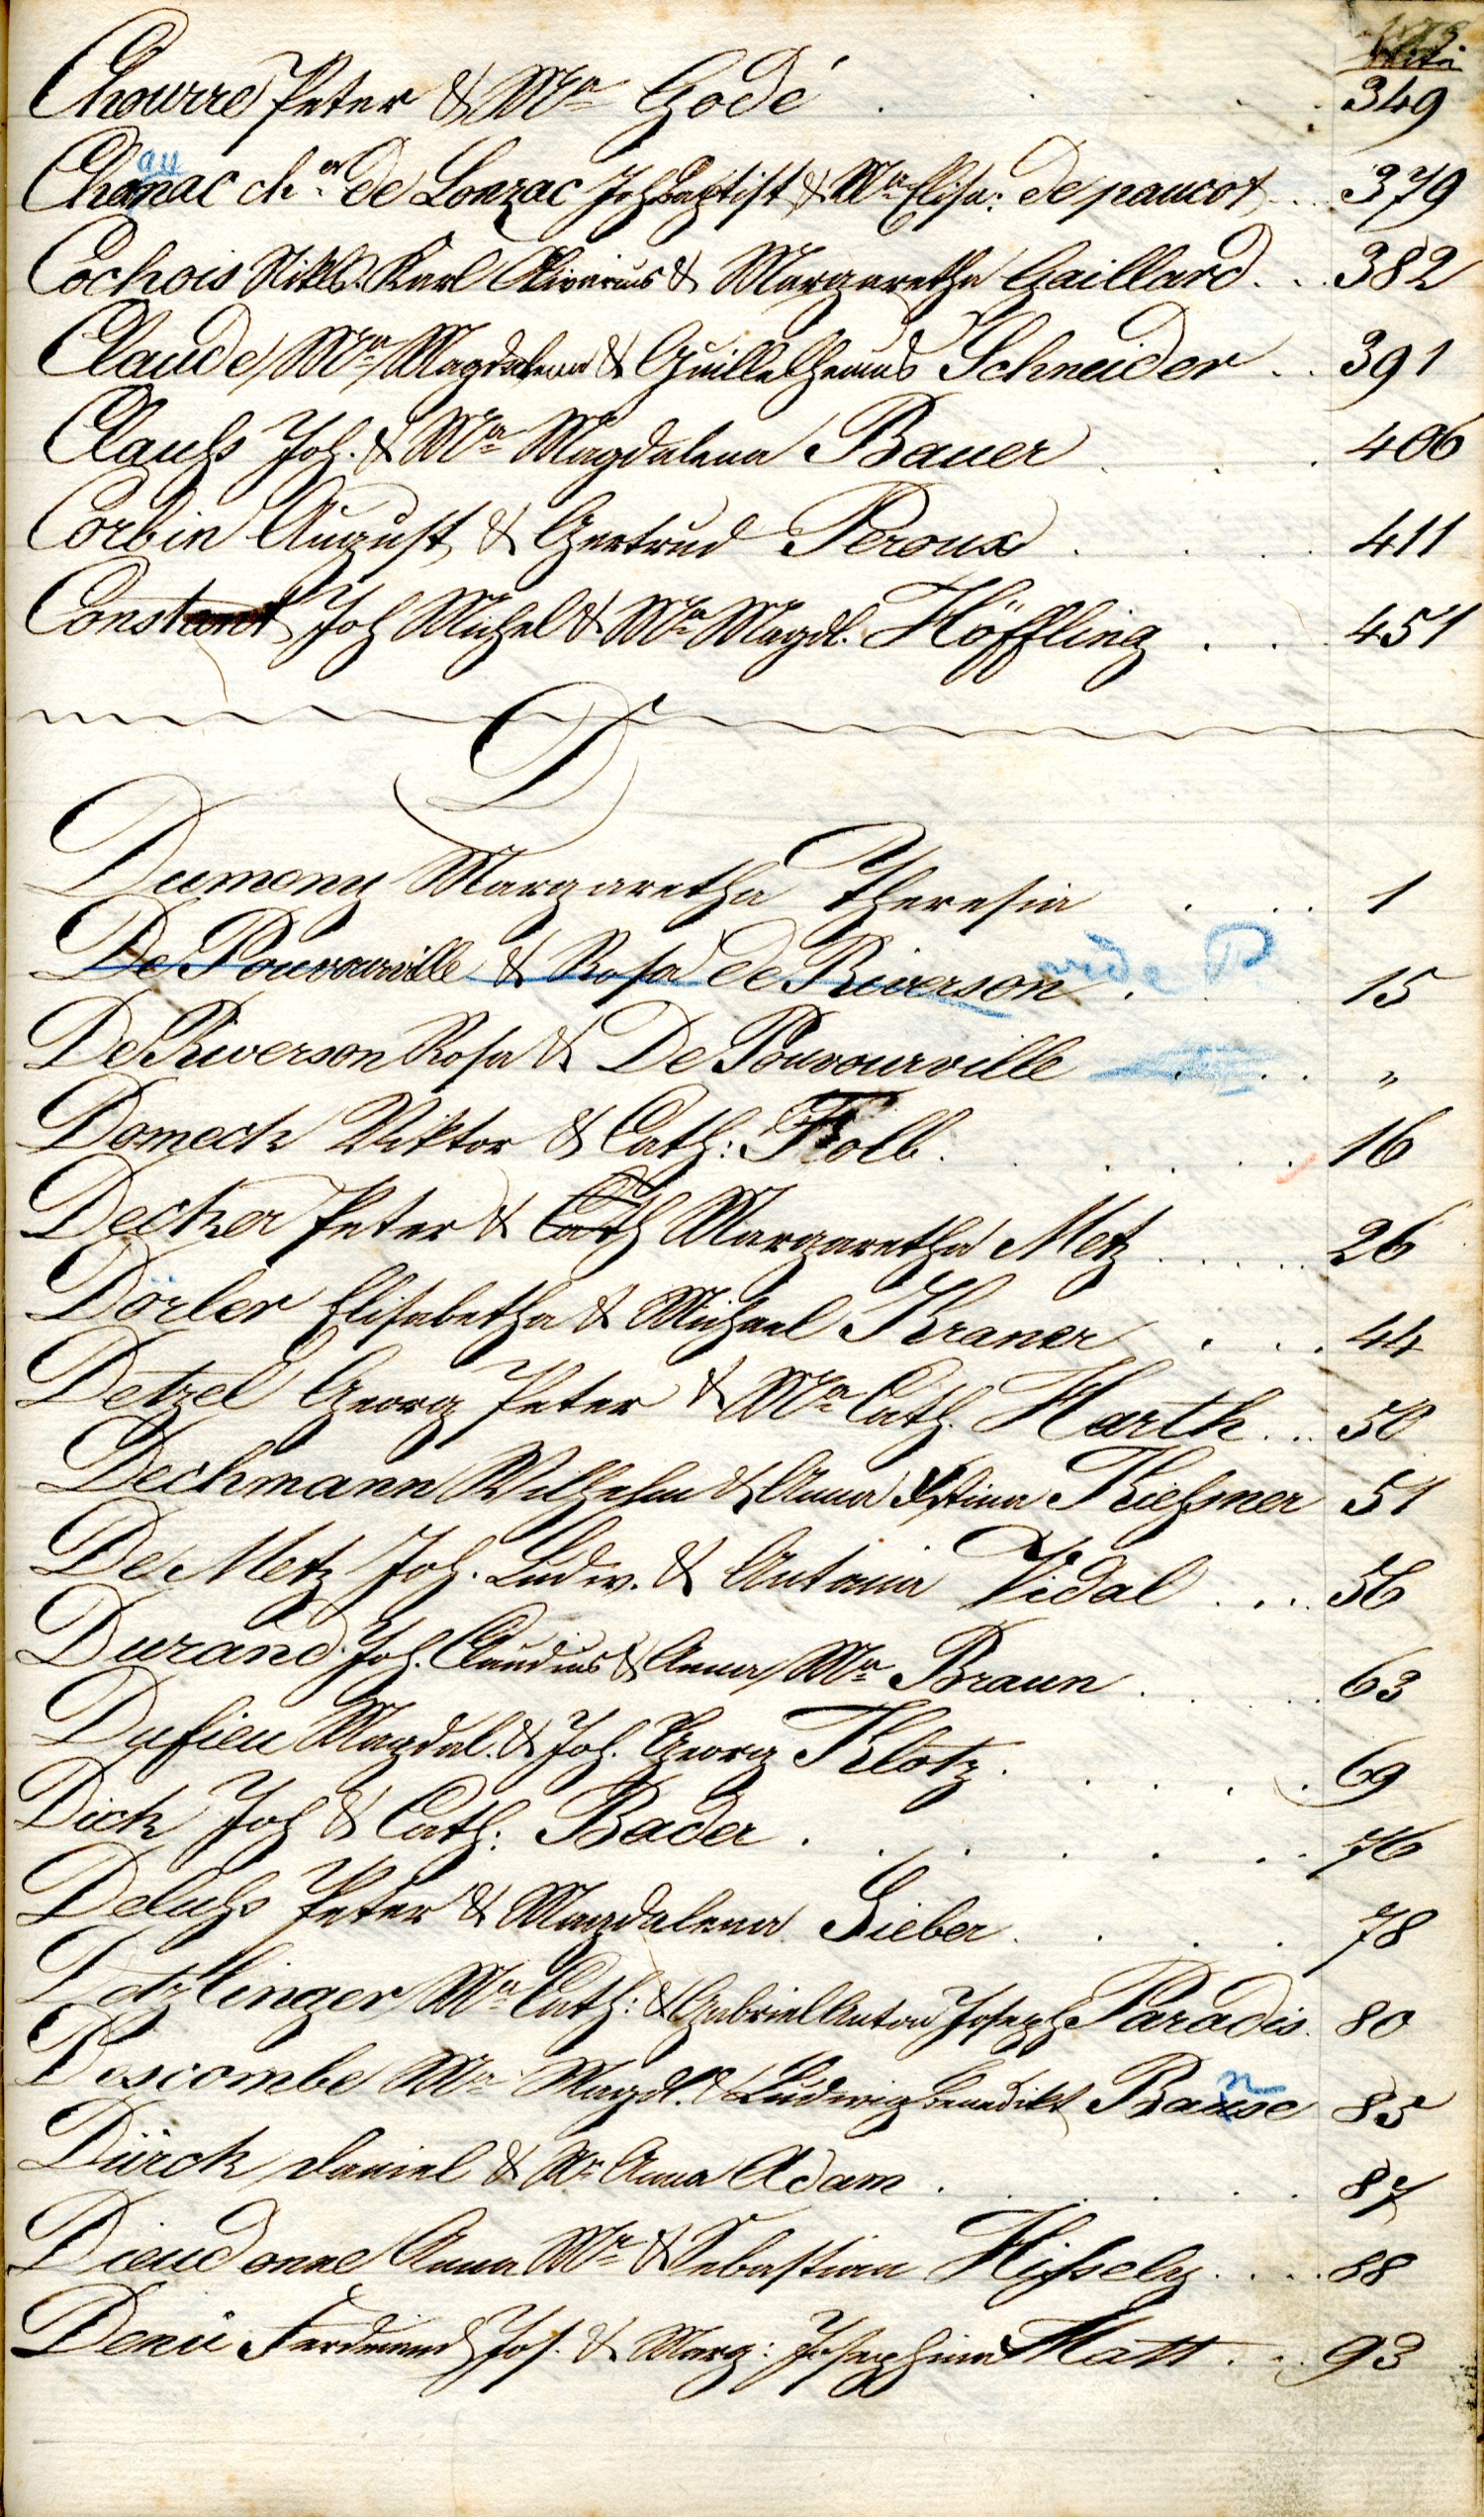 Chourre Peter & Mª Godé . . . . . 349
au
Chonac chᵉʳ de Lonzac Joh Baptist & Mª Elisa: de paucot . . 379
Cochois Nikls. Karl Oliverius & Margaretha Gaillard . . 382
Claude Mª Magdalena & Guillelhemus Schneider . . 391
Clauß Joh. & Mª Magdalena Bauer . . . 406
Corbin August & Gertrud Peroux . . . . 411
Constant Joh Michel & Mª Magdl. Höffling . . . 451
D
Dumony Margaretha Theresia . . . 1
De Pouvourville & Rosa de Riverson . . . 15
De Riverson Rosa & De Pouvourville . . . "
Domeck Viktor & Cath: Kolb . . . . . 16
Decker Peter & Cath Margaretha Metz . . . . . 26
Dörler Elisabetha & Michael Kraner . . . 44
Detzel Georg Peter & Mª Cath. Harth . . . 50
Dechmann Wilhelm & Anna Xstina Kießner 51
De Metz Joh. Ludw. & Antonia Vidal . . . 56
Durand Joh. Claudius & Anna Mª Braun . . . . 63
Dufieu Magdal. & Joh. Georg Klotz . . . . . 69
Dick Joh & Cath: Bader . . . . . . 76
Deluß Peter & Magdalena Sieber . . . . 78
Dotzlinger Mª Cath: & Gabriel Anton Joseph Paradis. 80
n
Descombe Mª Magdl. & Ludwig Benedikt Rause 85
Dürck Daniel & Mª Anna Adam . . . . . 87
Dieudonne Anna Mª & Sebastian Hissely . . . . 88
Denü Ferdinand Jos. & Marg: Josephina Matt . . . 93